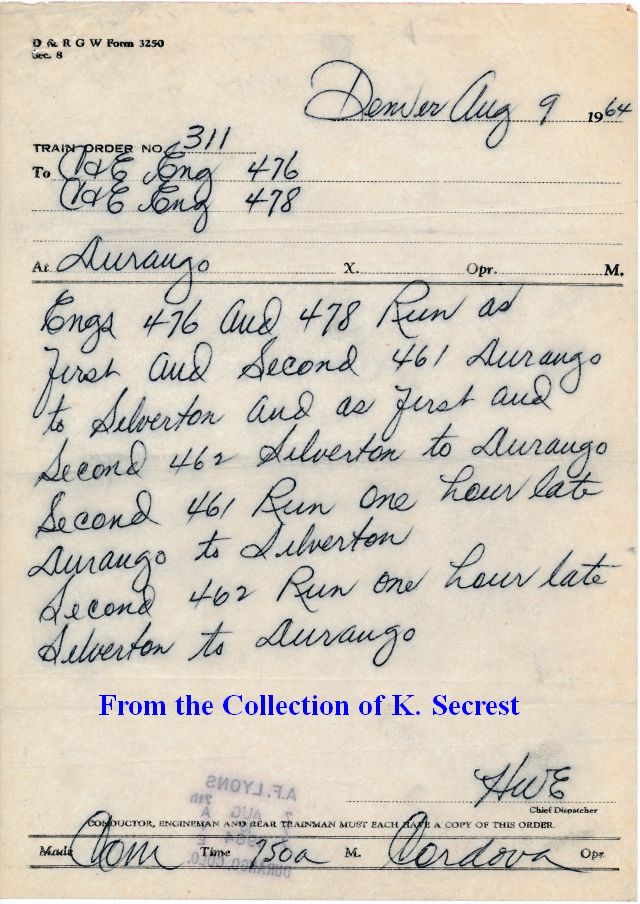 D & R G W Form 3250
Sec. 8
Denver Aug 9 1964
TRAIN ORDER NO. 311
To C&E Eng 476
C&E Eng 478
At Durango X. Opr. M.
Engs 476 and 478 Run as
First and Second 461 Durango
to Silverton and as First and
Second 462 Silverton to Durango
Second 461 Run one hour late
Durango to Silverton
Second 462 Run one hour late
Silverton to Durango
From the Collection of K. Secrest
HWE
Chief Dispatcher
A.F. LYONS
7th
7 AUG A
1964
DURANGO, COLO.
CONDUCTOR, ENGINEMAN AND REAR TRAINMAN MUST EACH HAVE A COPY OF THIS ORDER.
Made Com Time 750a M. Cordova Opr.